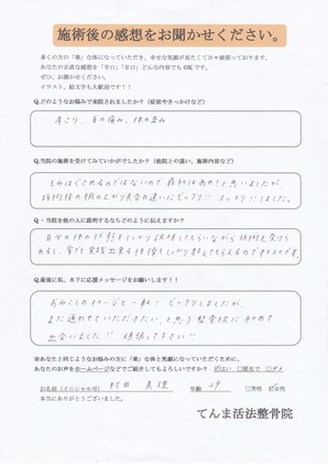 施術後の感想をお聞かせください。
多くの方の「楽」な体になっていただき、幸せな笑顔が見たくて日々頑張っております。
あなたの正直な感想を「辛口」「甘口」どんな内容でもOKです。
ぜひ、お聞かせください。
イラスト、絵文字も大歓迎です！！
Q.どのようなお悩みで来院されましたか？（症状やきっかけなど）
肩こり、首の痛み、体の歪み
Q.当院の施術を受けてみていかがでしたか？（他院との違い、施術内容など）
もみほぐされるのではないので最初はあれ？と思いましたが、
施術後の桃の上がり具合の違いにビックリ!! スッキリしました。
Q・当院を他の人に説明するならどのように伝えますか？
自分の体の状態をしっかり説明してもらいながら施術を受けら
れるし、家でも実践出来る体操をしっかり教えてもらえるのでオススメです。
Q.最後に私、木下に応援メッセージをお願いします！！
ビックリしましたが、
また通わせていただきたい、と思う整骨院に初めて
出会いました!! 頑張って下さい!!
※あなたと同じようなお悩みの方に「楽」な体と笑顔になっていただくために、
あなたのお声をホームページなどでご紹介してもよろしいですか？ ☑はい □匿名で □ダメ
お名前（イニシャル可） 村田 年齢 29 □男性 ☑女性
本当にありがとうございました。
てんま活法整骨院